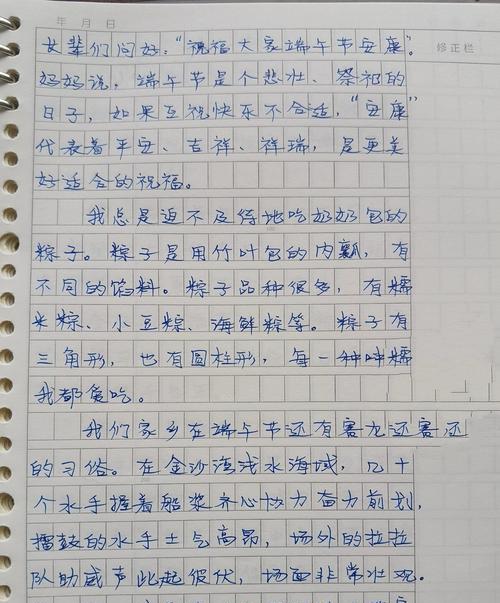 年 月 日
修正栏
女辈们问好：“祝福大家端午节安康”。
妈妈说，端午节是个悲壮、祭祀的
日子，如果互祝快乐不合适，“安康”
代表着平安、吉祥、祥瑞，是更美
好适合的祝福。
我总是迫不及待地吃奶奶包的
粽子。粽子是用竹叶包的内瓤，有
不同的馅料。粽子品种很多，有糯
米粽、小豆粽、海鲜粽等。粽子有
三角形，也有圆柱形，每一种
我都爱吃。
我们家乡在端午节还有赛龙还赛还
的习俗。在金沙湾浅水海域，几十
个水手握着船桨齐心协力奋力前划，
擂鼓的水手士气高昂，场外的拉拉
队助威声此起彼伏，场面非常壮观。